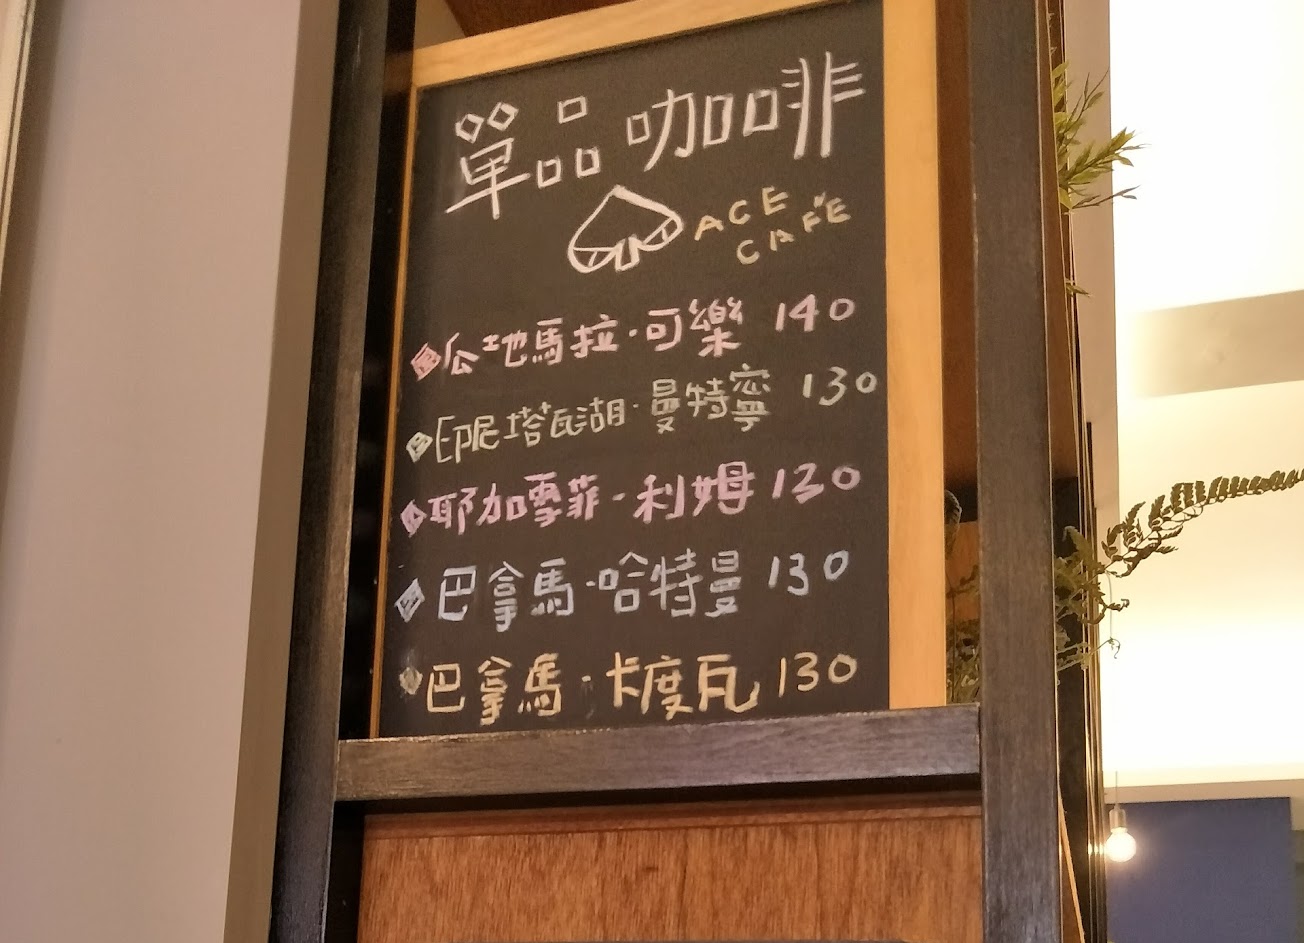 單品咖啡
ACE
CAFE
瓜地馬拉·可樂 140
印尼塔瓦湖·曼特寧 130
耶加雪菲·利姆 130
巴拿馬·哈特曼 130
巴拿馬·卡度瓦 130